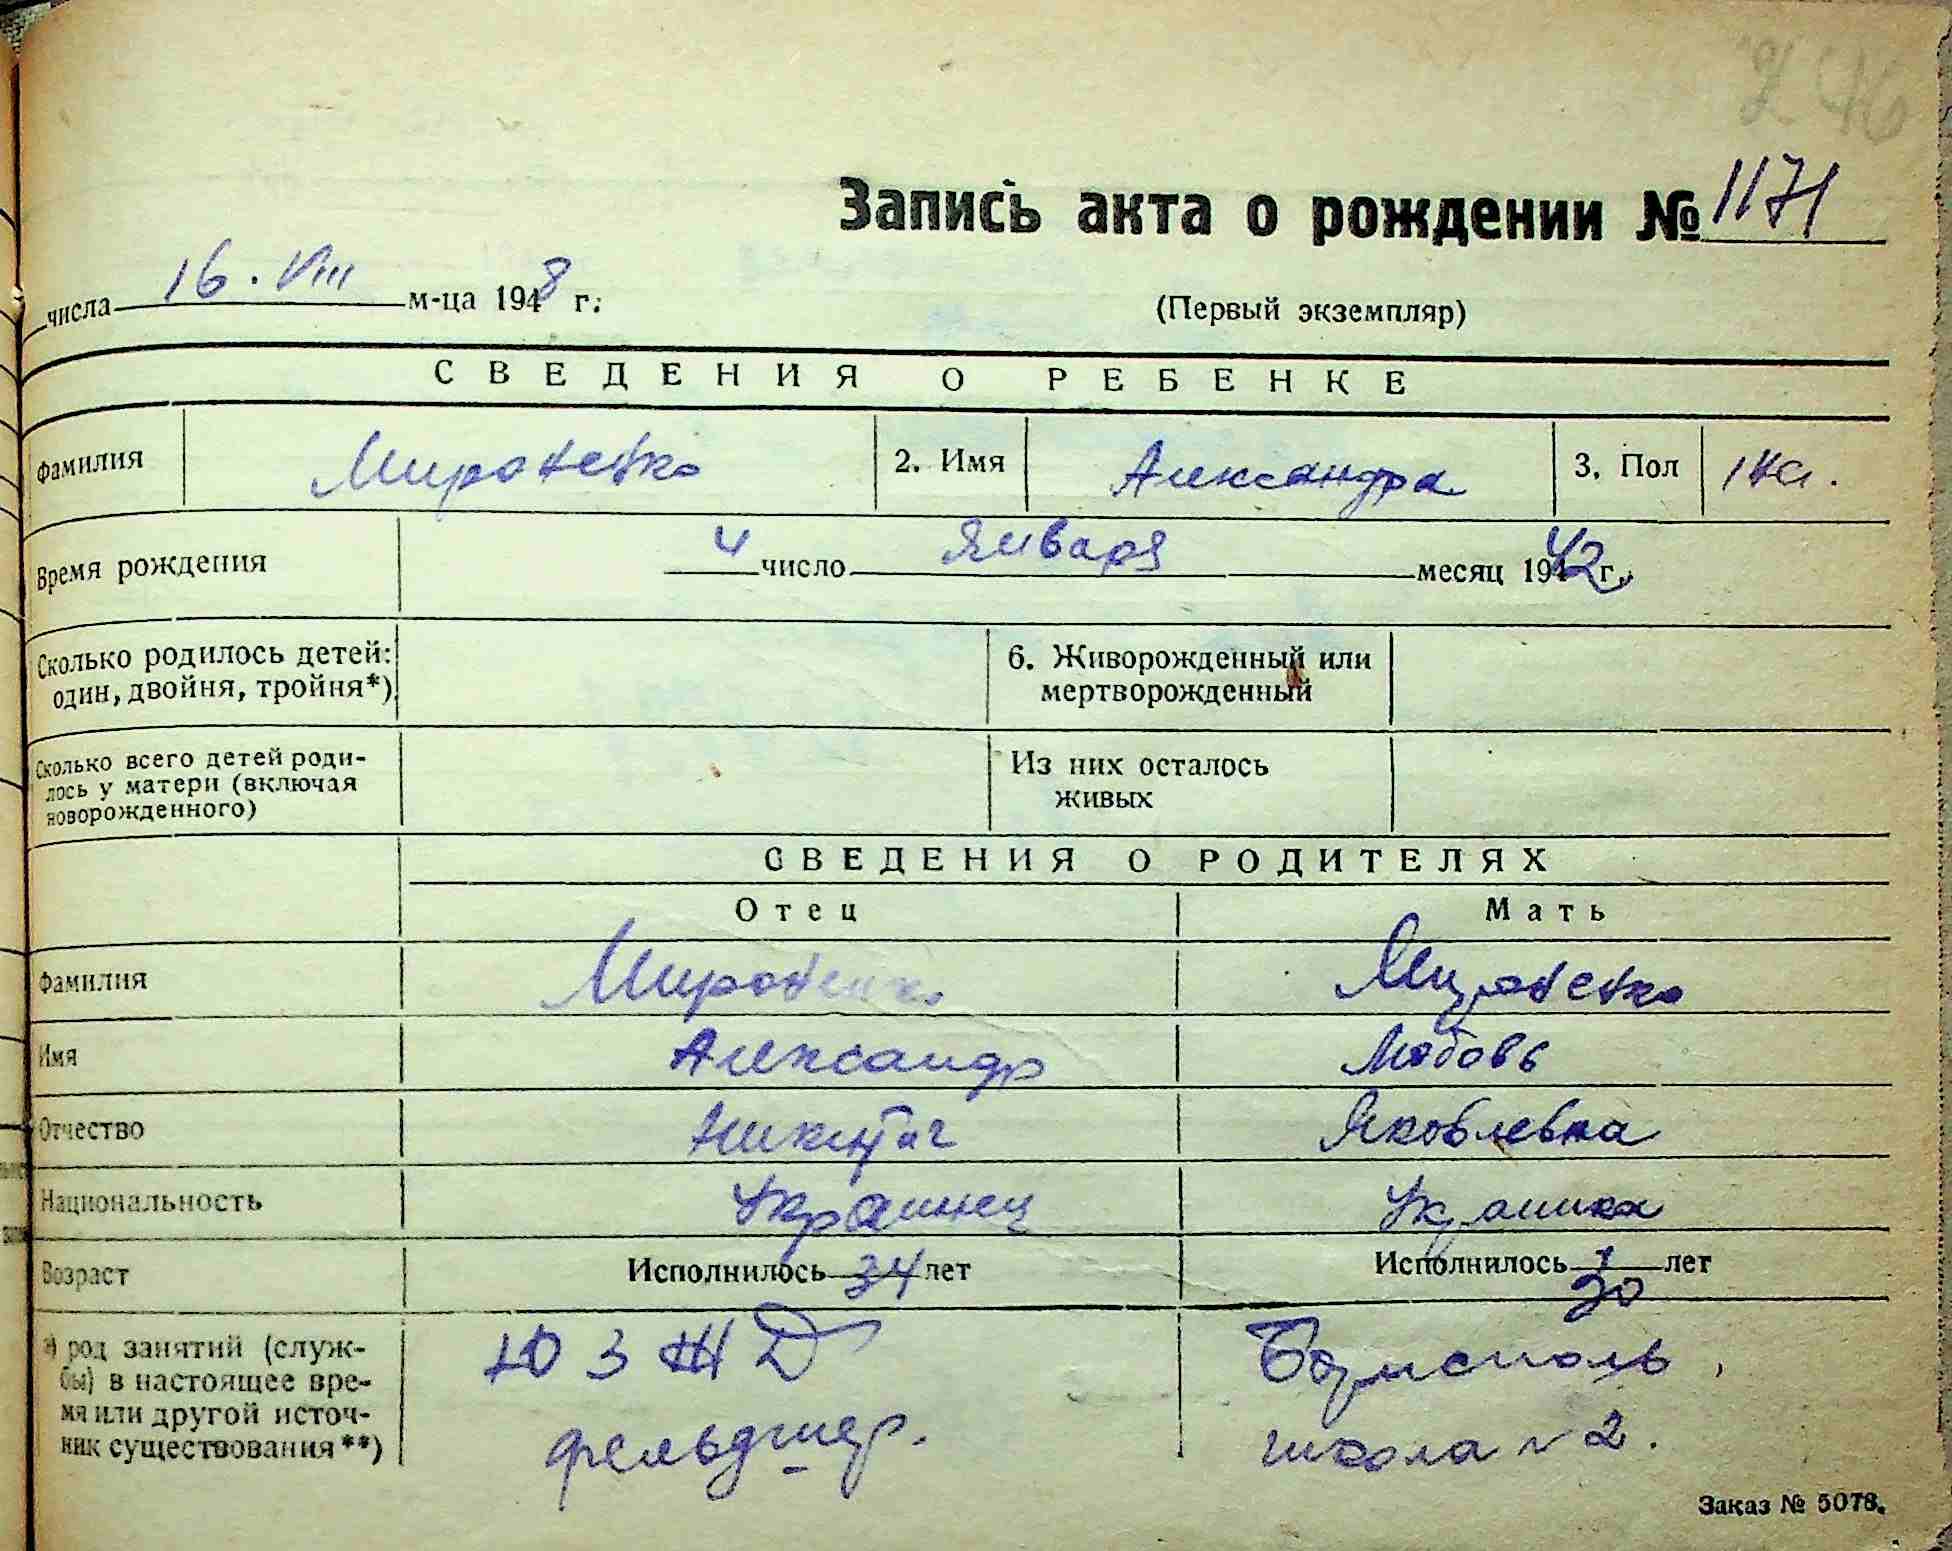 246
Запись акта о рождении № 1171
числа 16. VIII м-ца 1948 г.
(Первый экземпляр)
СВЕДЕНИЯ О РЕБЕНКЕ
Фамилия Мироненко 2. Имя Александра 3. Пол
Время рождения 4 число Января месяц 1942 г.
Сколько родилось детей: 6. Живорожденный или
один, двойня, тройня*) мертворожденный
Сколько всего детей роди- Из них осталось
лось у матери (включая живых
новорожденного)
СВЕДЕНИЯ О РОДИТЕЛЯХ
Отец Мать
Фамилия Мироненко Мироненко
Имя Александр Любовь
Отчество Никитич Яковлевна
Национальность Украинец Украинка
Возраст Исполнилось 34 лет Исполнилось 30 лет
а) род занятий (служ- Ю З Ж Д Борисполь,
бы) в настоящее вре-
мя или другой источ- фельдшер. школа № 2.
ник существования**)
Заказ № 5078.